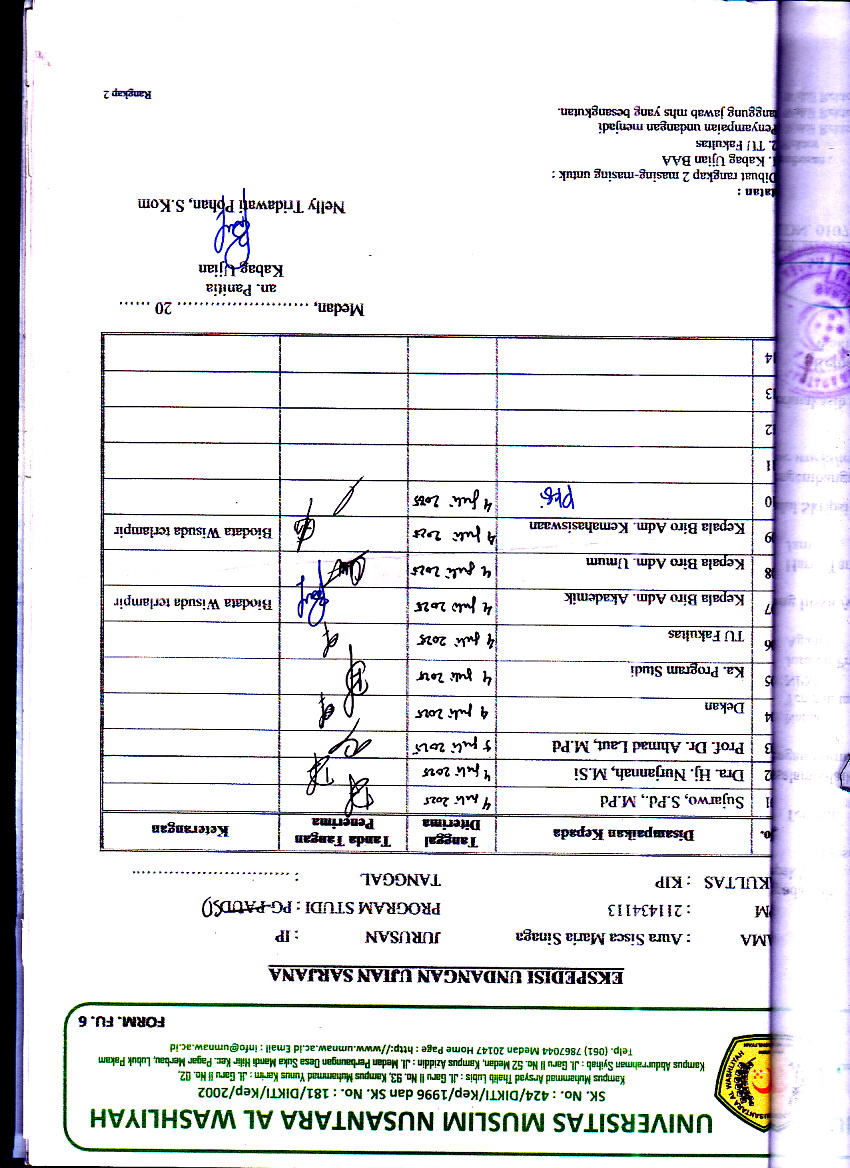 UNIVERSITAS MUSLIM NUSANTARA AL WASHLIYAH
SK. No. : 424/DIKTI/Kep/1996 dan SK. No. : 181/DIKTI/Kep/2002
Kampus Muhammad Arsyad Thalib Lubis : Jl. Garu II No. 93, Kampus Muhammad Yunus Karim : Jl. Garu II No. 02,
Kampus Abdurrahman Syihab : Jl. Garu II No. 52 Medan, Kampus Aziddin : Jl. Medan Perbaungan Desa Suka Mandi Hilir Kec. Pagar Merbau, Lubuk Pakam
Telp. (061) 7867044 Medan 20147 Home Page : http://www.umnaw.ac.id Email : info@umnaw.ac.id
FORM. FU. 6
EKSPEDISI UNDANGAN UJIAN SARJANA
AMA : Aura Sisca Maria Sinaga JURUSAN : IP
PM : 211434113 PROGRAM STUDI : PG-PAUD/SD
KULTAS : KIP TANGGAL : ..............................
o. Disampaikan Kepada Tanggal Diterima Tanda Tangan Penerima Keterangan
01 Sujarwo, S.Pd., M.Pd 4 juli 2025
02 Dra. Hj. Nurjannah, M.Si 4 juli 2025
03 Prof. Dr. Ahmad Laut, M.Pd juli 2025
04 Dekan 4 juli 2025
05 Ka. Program Studi 4 juli 2025
06 TU Fakultas 4 juli 2025
07 Kepala Biro Adm. Akademik 4 juli 2025 Biodata Wisuda terlampir
08 Kepala Biro Adm. Umum 4 juli 2025
09 Kepala Biro Adm. Kemahasiswaan 4 juli 2025 Biodata Wisuda terlampir
10 4 juli 2025
11
12
13
14
Medan, ........................... 20 ......
an. Panitia
Kabag Ujian
Nelly Tridawati Pohan, S.Kom
tatan :
Dibuat rangkap 2 masing-masing untuk :
1. Kabag Ujian BAA
2. TU Fakultas
Penyampaian undangan menjadi
anggung jawab mhs yang besangkutan.
Rangkap 2